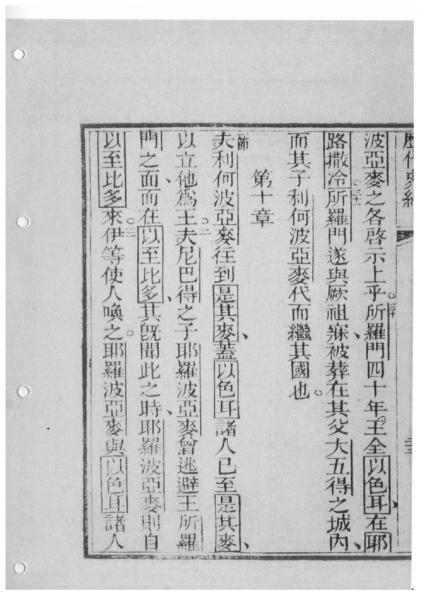 歷代史紀
二三
波亞麥之各啓示上乎所羅門四十年王全以色耳在耶
路撒冷所羅門遂與厥祖寐被葬在其父大五得之城內
而其子利何波亞麥代而繼其國也
第十章
節夫利何波亞麥徃到是其麥蓋以色耳諸人已至是其麥
以立他爲王夫尼巴得之子耶羅波亞麥曾逃避王所羅
門之面而在以至比多其旣聞此之時耶羅波亞麥則自
以至比多來伊等使人喚之耶羅波亞麥與以色耳諸人